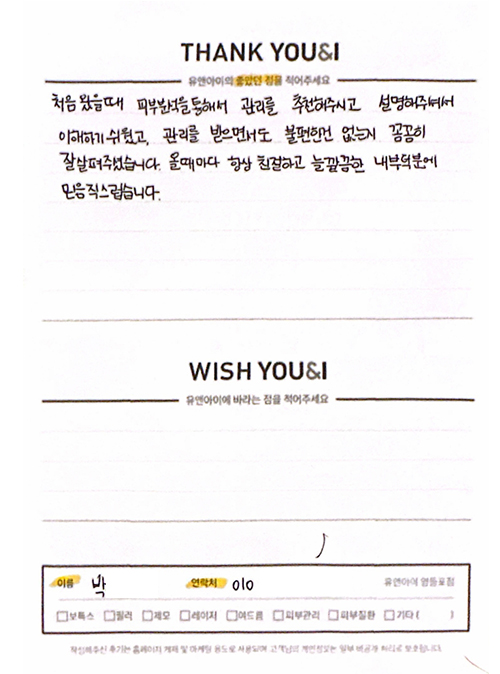 THANK YOU&I
유앤아이의 좋았던 점을 적어주세요
처음 왔을때 피부분석을 통해서 관리를 추천해주시고 설명해주셔서
이해하기 쉬웠고, 관리를 받으면서도 불편한건 없는지 꼼꼼히
잘 살펴주셨습니다. 올때마다 항상 친절하고 늘 깔끔한 내부덕분에
믿음직스럽습니다.
WISH YOU&I
유앤아이에 바라는 점을 적어주세요
이름 박 연락처 010 유앤아이 영등포점
보톡스 필러 제모 레이저 여드름 피부관리 피부질환 기타 ( )
작성해주신 후기는 홈페이지 게재 및 마케팅 용도로 사용되며 고객님의 개인정보는 일부 비공개 처리로 보호됩니다.